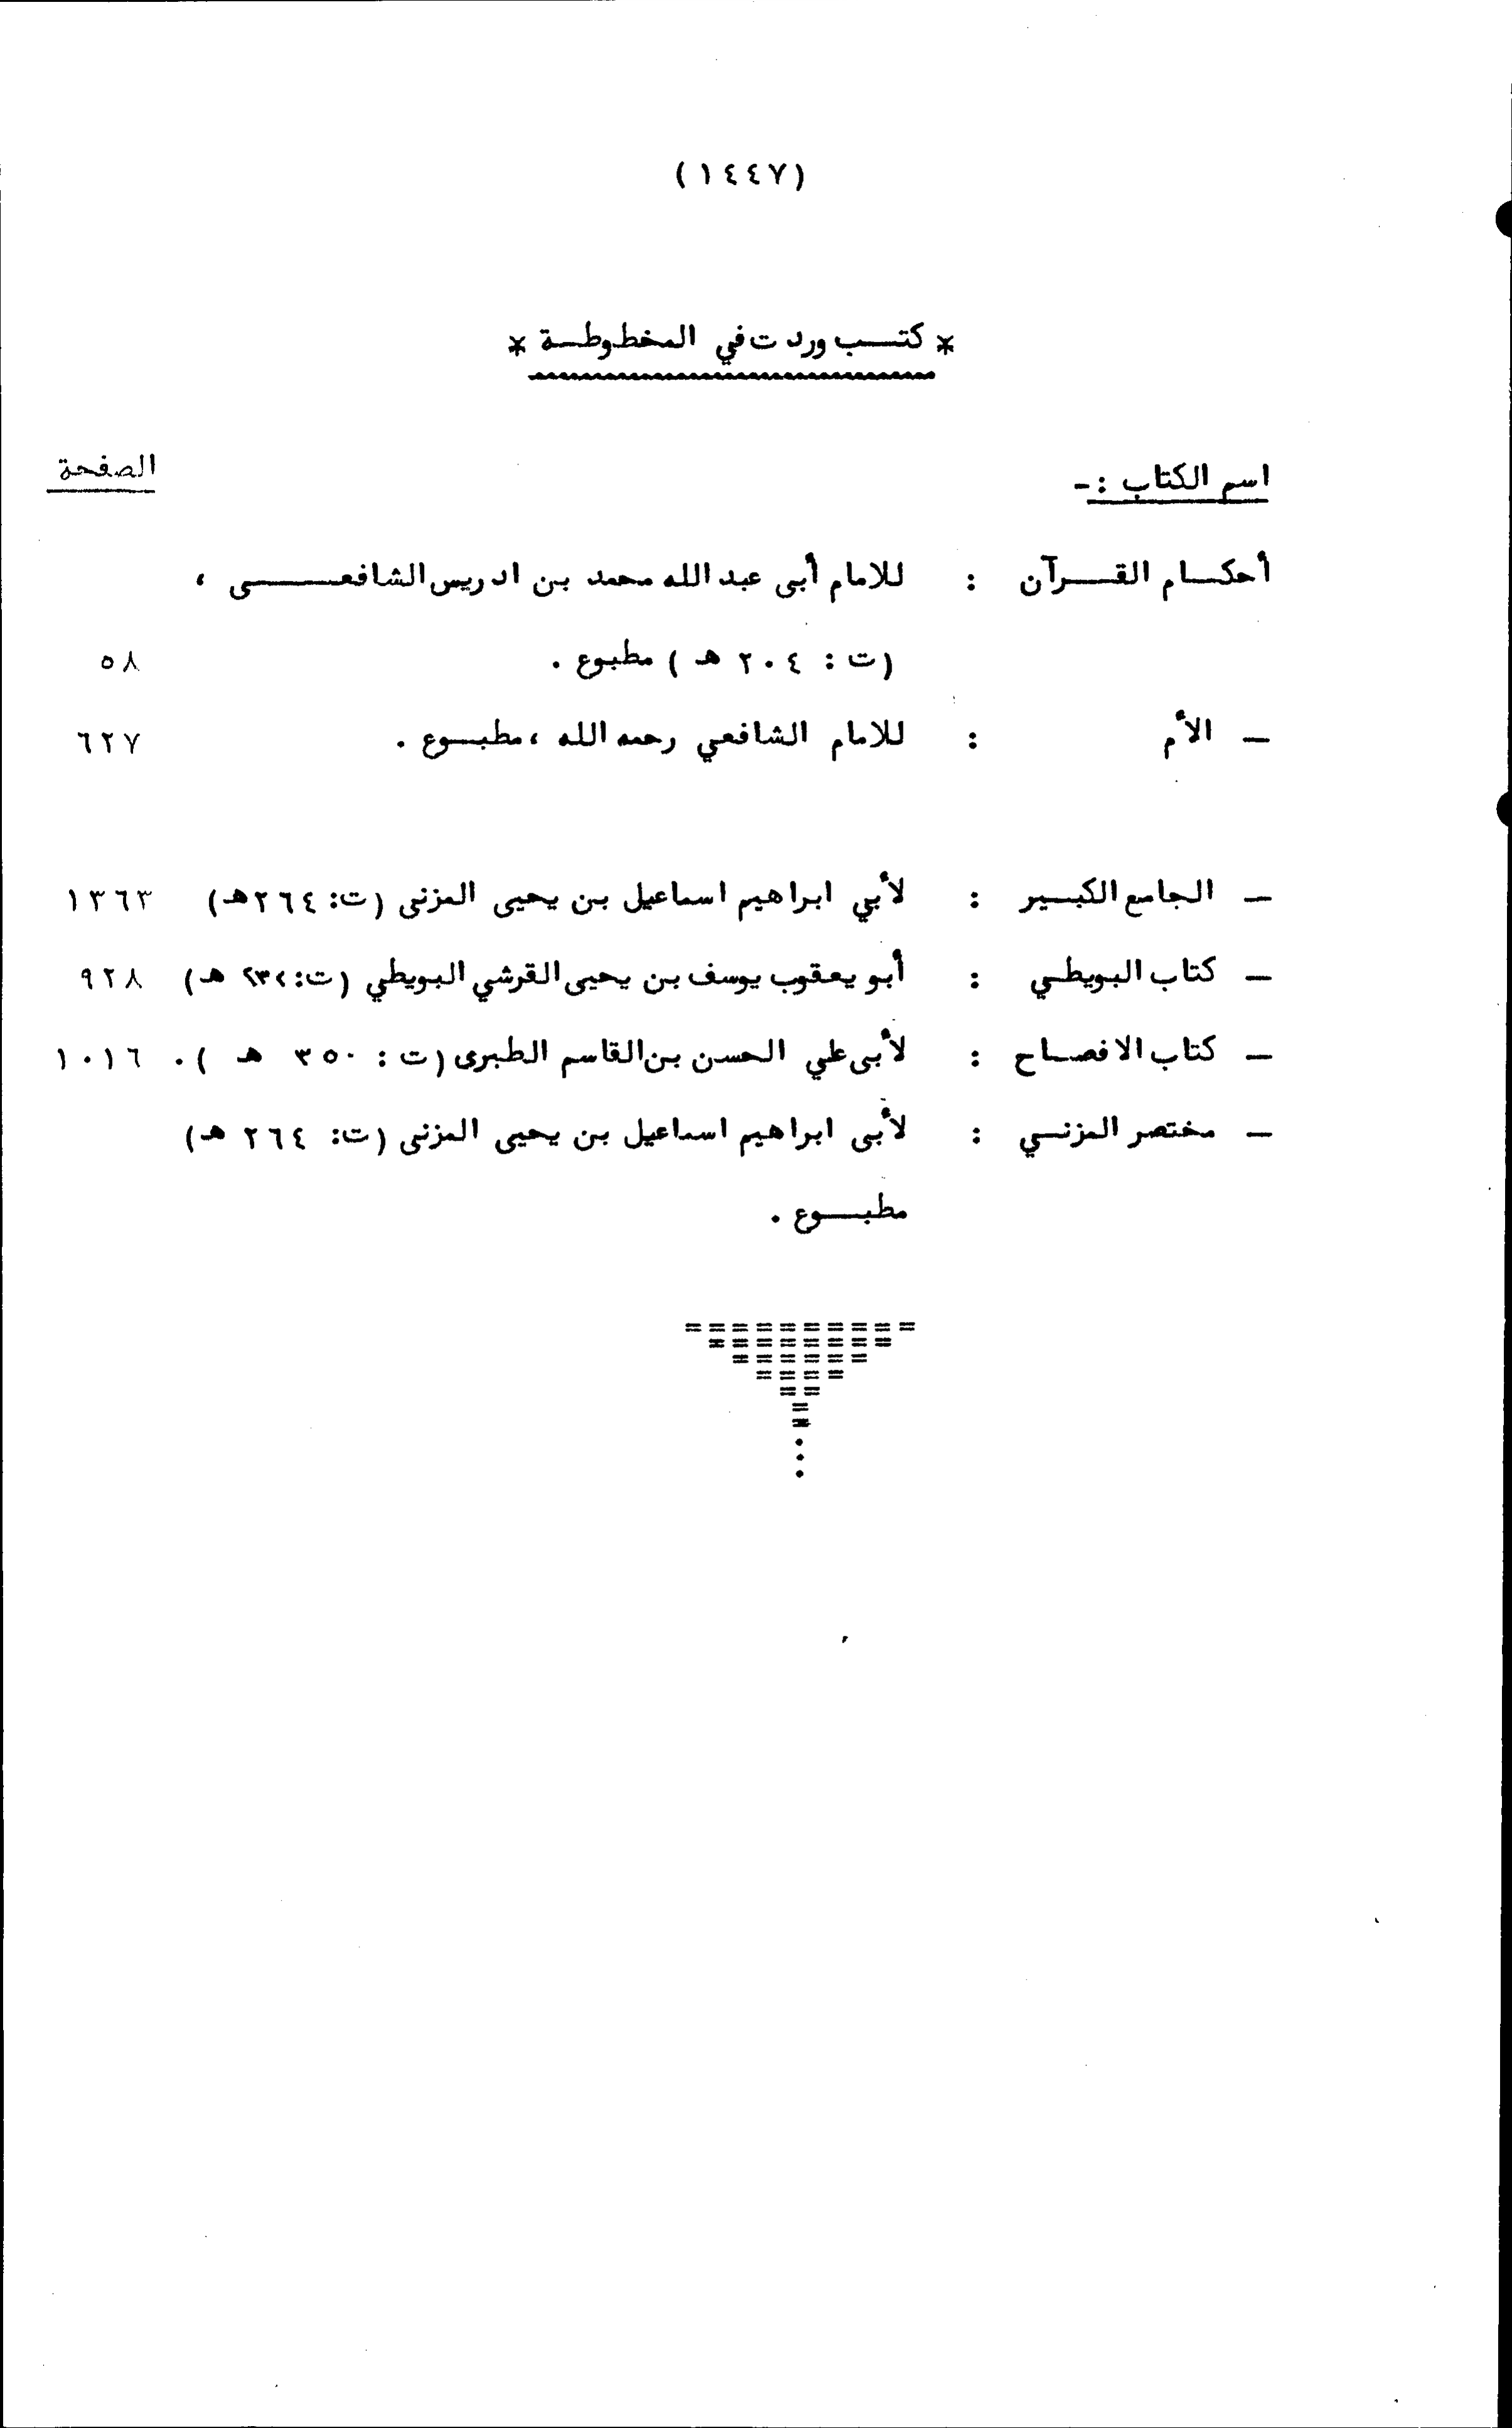 (١٤٤٧)
* كتب وردت في المخطوطة *
اسم الكتاب :- الصفحة
أحكام القرآن : للامام أبى عبد الله محمد بن ادريس الشافعى ،
(ت : ٢٠٤ هـ ) مطبوع . ٥٨
ـ الأم : للامام الشافعي رحمه الله ، مطبوع . ٦٢٧
ـ الجامع الكبير : لأبي ابراهيم اسماعيل بن يحيى المزنى (ت: ٢٦٤هـ) ١٣٦٣
ـ كتاب البويطي : أبو يعقوب يوسف بن يحيى القرشي البويطي (ت: هـ) ٩٢٨
ـ كتاب الافصاح : لأبى علي الحسن بن القاسم الطبرى (ت : ٣٥٠ هـ ) . ١٠١٦
ـ مختصر المزنى : لأبى ابراهيم اسماعيل بن يحيى المزنى (ت: ٢٦٤ هـ)
مطبوع .